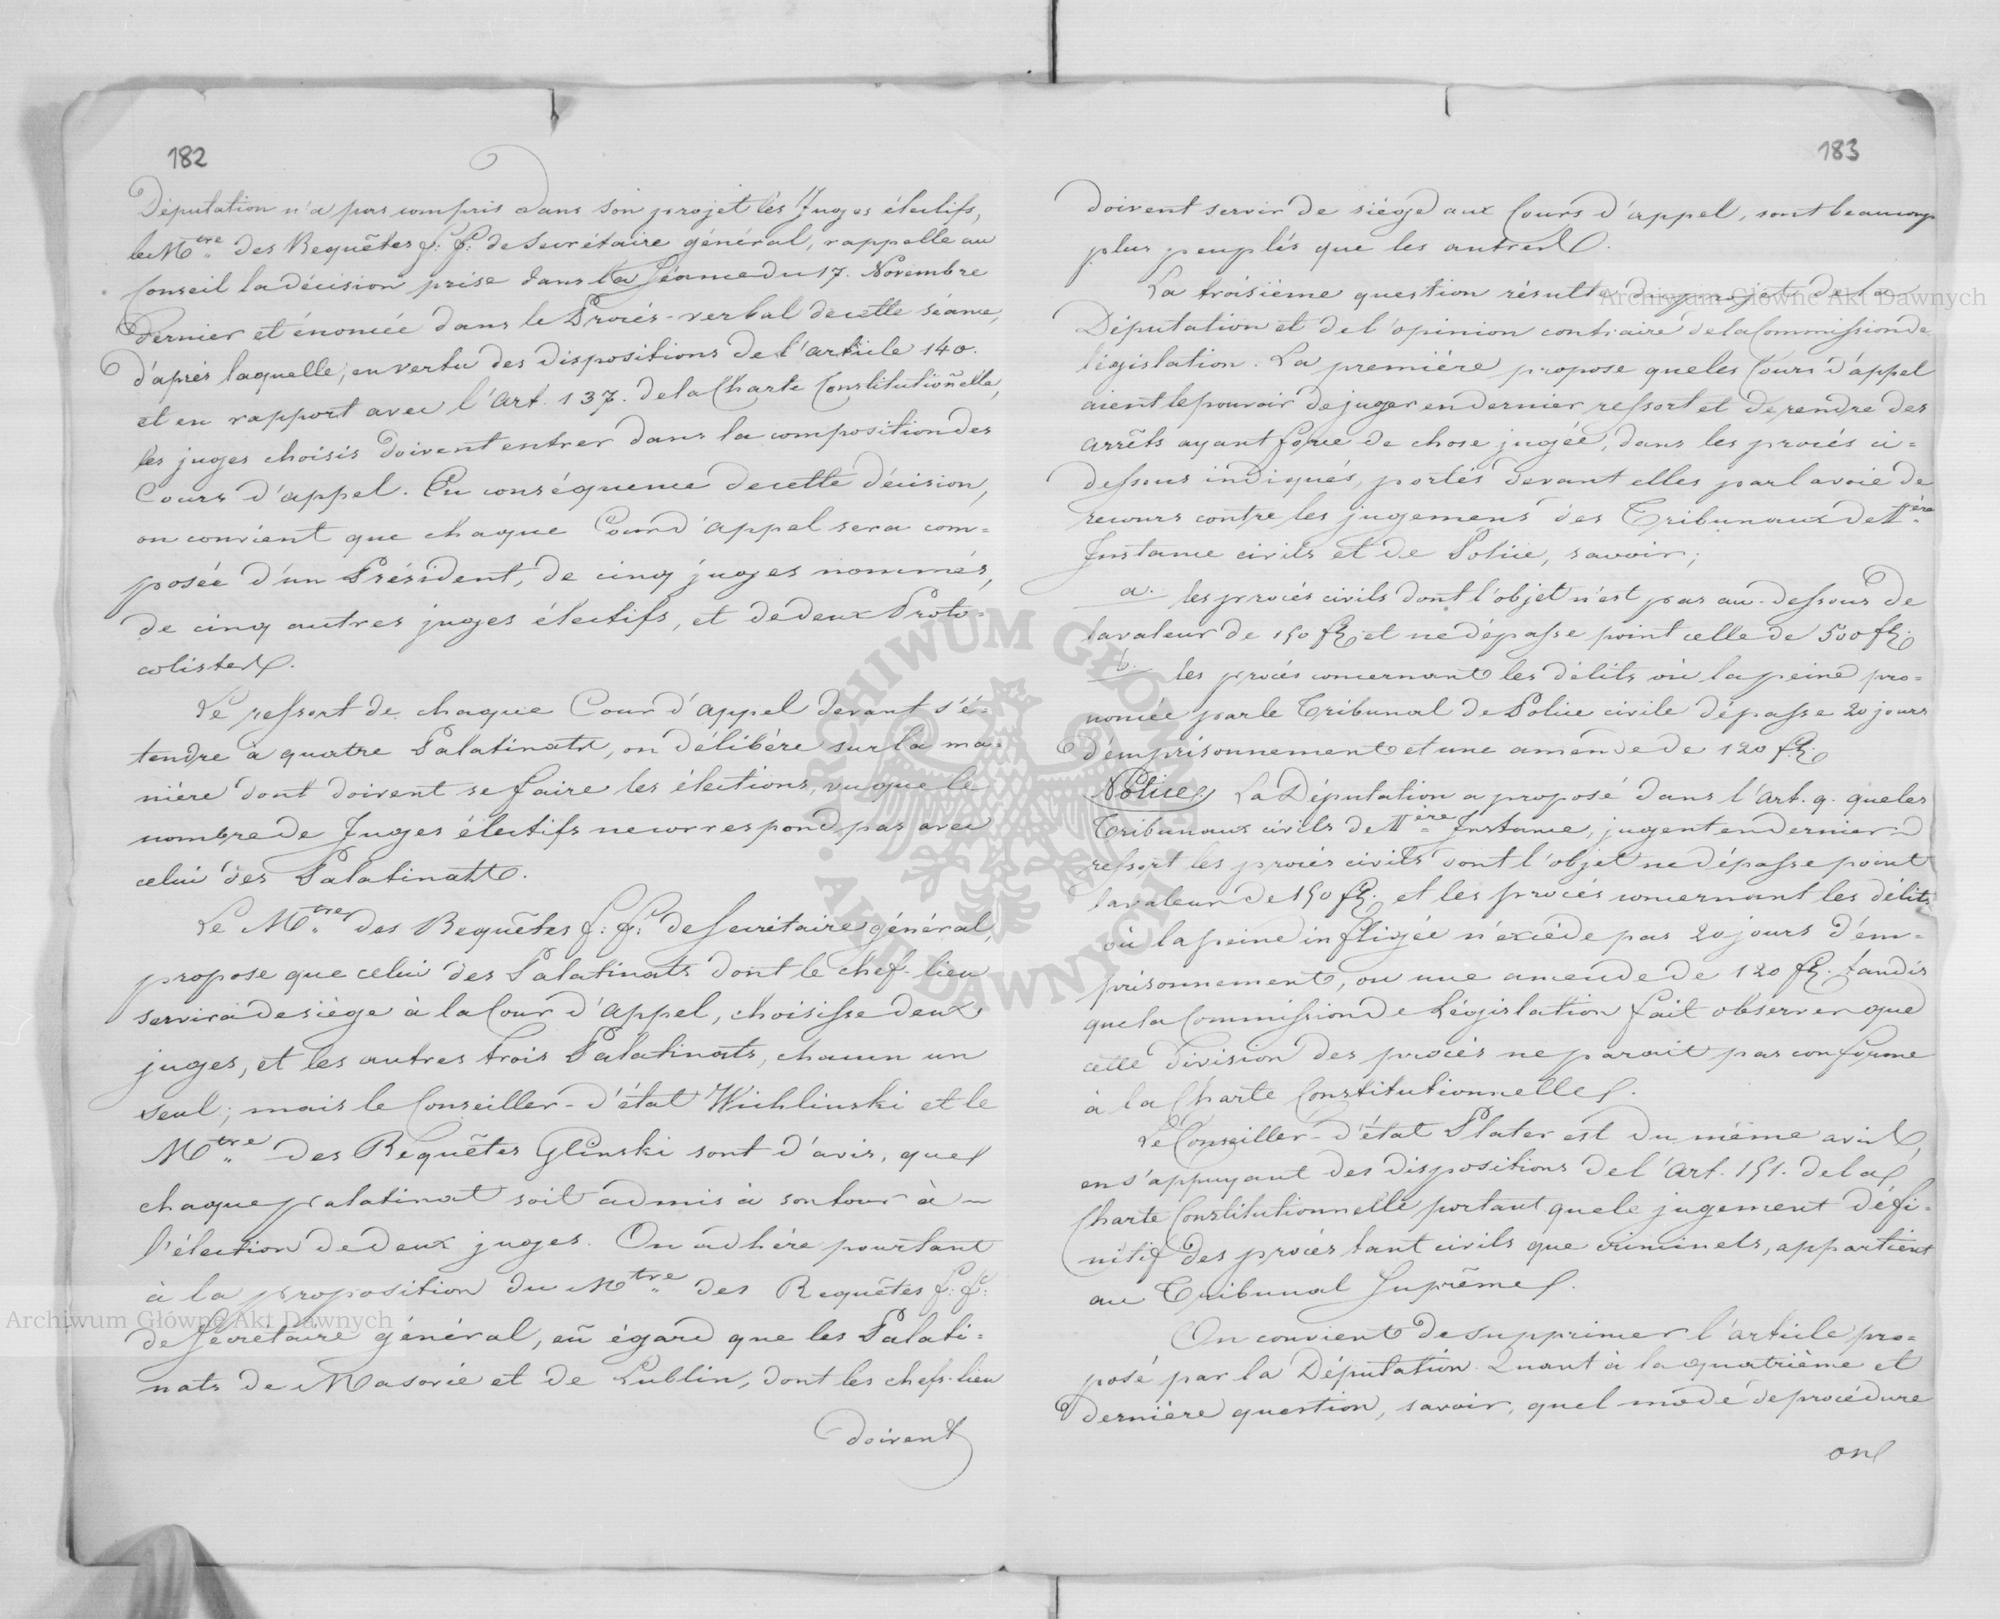 182
Députation n'a pas compris dans son projet les Juges électifs,
le Mtre des Requêtes f: f: de Secrétaire général, rappelle au
Conseil la décision prise dans la Séance du 17. Novembre
dernier et énoncée dans le Procès-verbal de cette séance,
d'après laquelle, en vertu des dispositions de l'article 140.
et en rapport avec l'Art. 137. de la Charte Constitutioñelle,
les juges choisis doivent entrer dans la composition des
Cours d'appel. En conséquence de cette décision,
on convient que chaque Cour d'appel sera com=
posée d'un Président, de cinq juges nommés,
de cinq autres juges électifs, et de deux Proto=
colistes.
Le ressort de chaque Cour d'appel devant s'é=
tendre à quatre Palatinats, on délibère sur la ma=
nière dont doivent se faire les élections, vu que le
nombre de Juges électifs ne correspond pas avec
celui des Palatinats.
Le Mtre des Requêtes f: f: de Secrétaire général,
propose que celui des Palatinats dont le chef-lieu
servira de siège à la Cour d'appel, choisisse deux
juges, et les autres trois Palatinats, chacun un
seul; mais le Conseiller-d'état Wichlinski et le
Mtre des Requêtes Glinski sont d'avis, que
chaque palatinat soit admis à son tour à
l'élection de deux juges. On adhère pourtant
à la proposition du Mtre des Requêtes f: f:
de Secrétaire général, eû égard que les Palati=
nats de Masovie et de Lublin, dont les chefs-lieu
doivent
183
doivent servir de siège aux Cours d'appel, sont beaucoup
plus peuplés que les autres.
La troisième question résulte du projet de la
Députation et de l'opinion contraire de la Commission de
législation. La première propose que les Cours d'appel
aient le pouvoir de juger en dernier ressort et de rendre des
arrêts ayant force de chose jugée, dans les procès ci=
dessous indiqués, portés devant elles par la voie de
recours contre les jugemens des Tribunaux de 1ière
Instance civils et de Police, savoir;
a. les procès civils dont l'objet n'est pas au-dessous de
la valeur de 150 fl: et ne dépasse point celle de 500 fl:
b. les procès concernant les délits où la peine pro=
noncée par le Tribunal de Police civile dépasse 20 jours
d'emprisonnement et une amende de 120 fl:
Police. La Députation a proposé dans l'Art. 9. que les
Tribunaux civils de 1ière Instance, jugent en dernier
ressort les procès civils dont l'objet ne dépasse point
la valeur de 150 fl: et les procès concernant les délits
où la peine infligée n'excède pas 20 jours d'em=
prisonnement, ou une amende de 120 fl. tandis
que la Commission de Législation fait observer que
cette division des procès ne parait pas conforme
à la Charte Constitutionnelle.
Le Conseiller-d'état Plater est du même avis,
en s'appuyant des dispositions de l'Art. 151. de la
Charte Constitutionnelle portant que le jugement défi=
nitif des procès tant civils que criminels, appartient
au Tribunal Suprême.
On convient de supprimer l'article pro=
posé par la Députation. Quant à la quatrième et
dernière question, savoir, quel mode de procédure
on
Archiwum Główne Akt Dawnych
Archiwum Główne Akt Dawnych
ARCHIWUM GŁÓWNE · AKT DAWNYCH ·